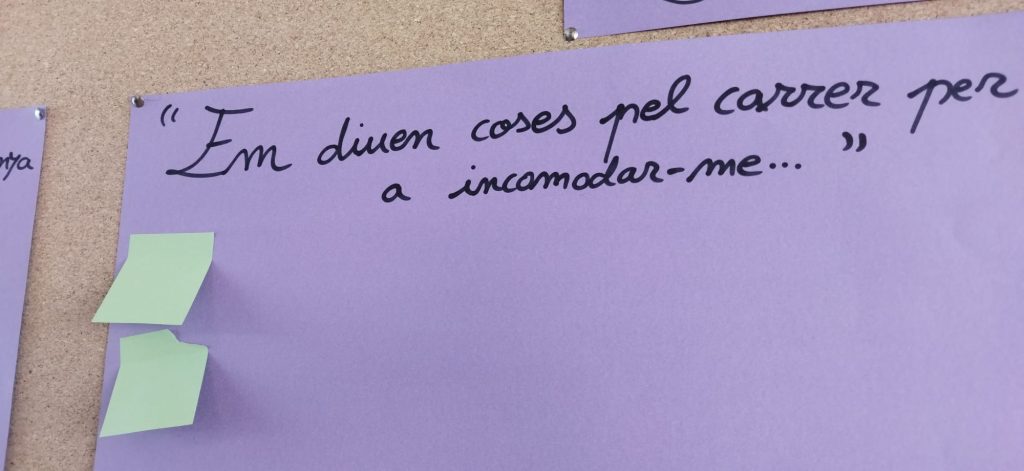 “ Em diuen coses pel carrer per
a incomodar-me... ”